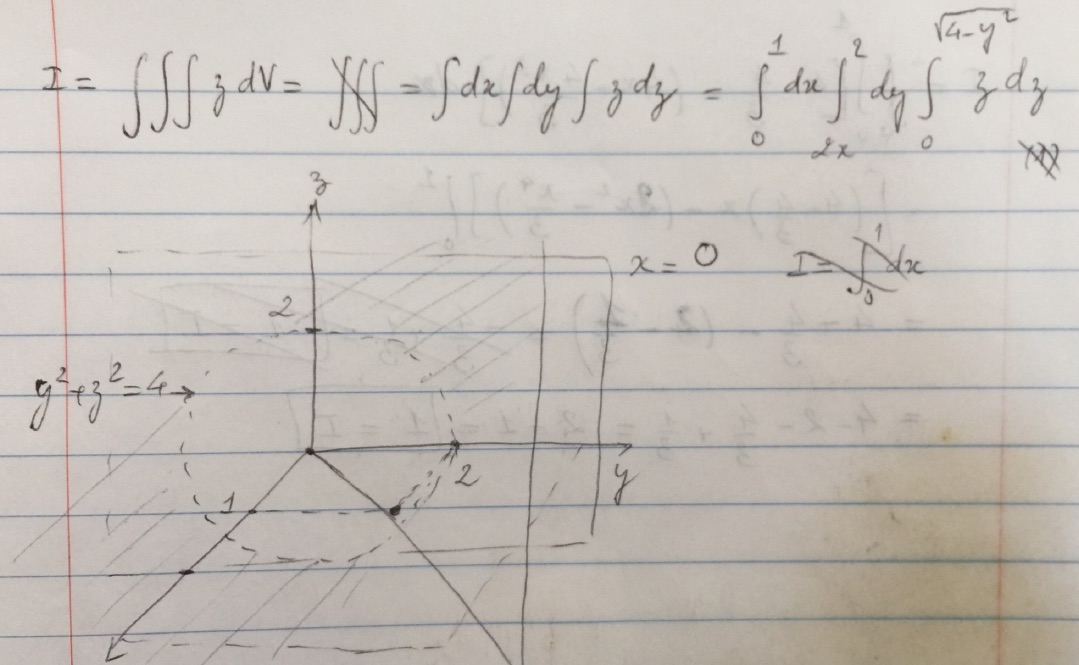 I = ∫∫∫ z dV = ∫∫∫ = ∫dx ∫dy ∫ z dz = ∫₀¹ dx ∫₂ₓ² dy ∫₀^√(4-y²) z dz
z
x = 0 I = ∫₀¹ dx
2
y²+z²=4 →
2 y
1